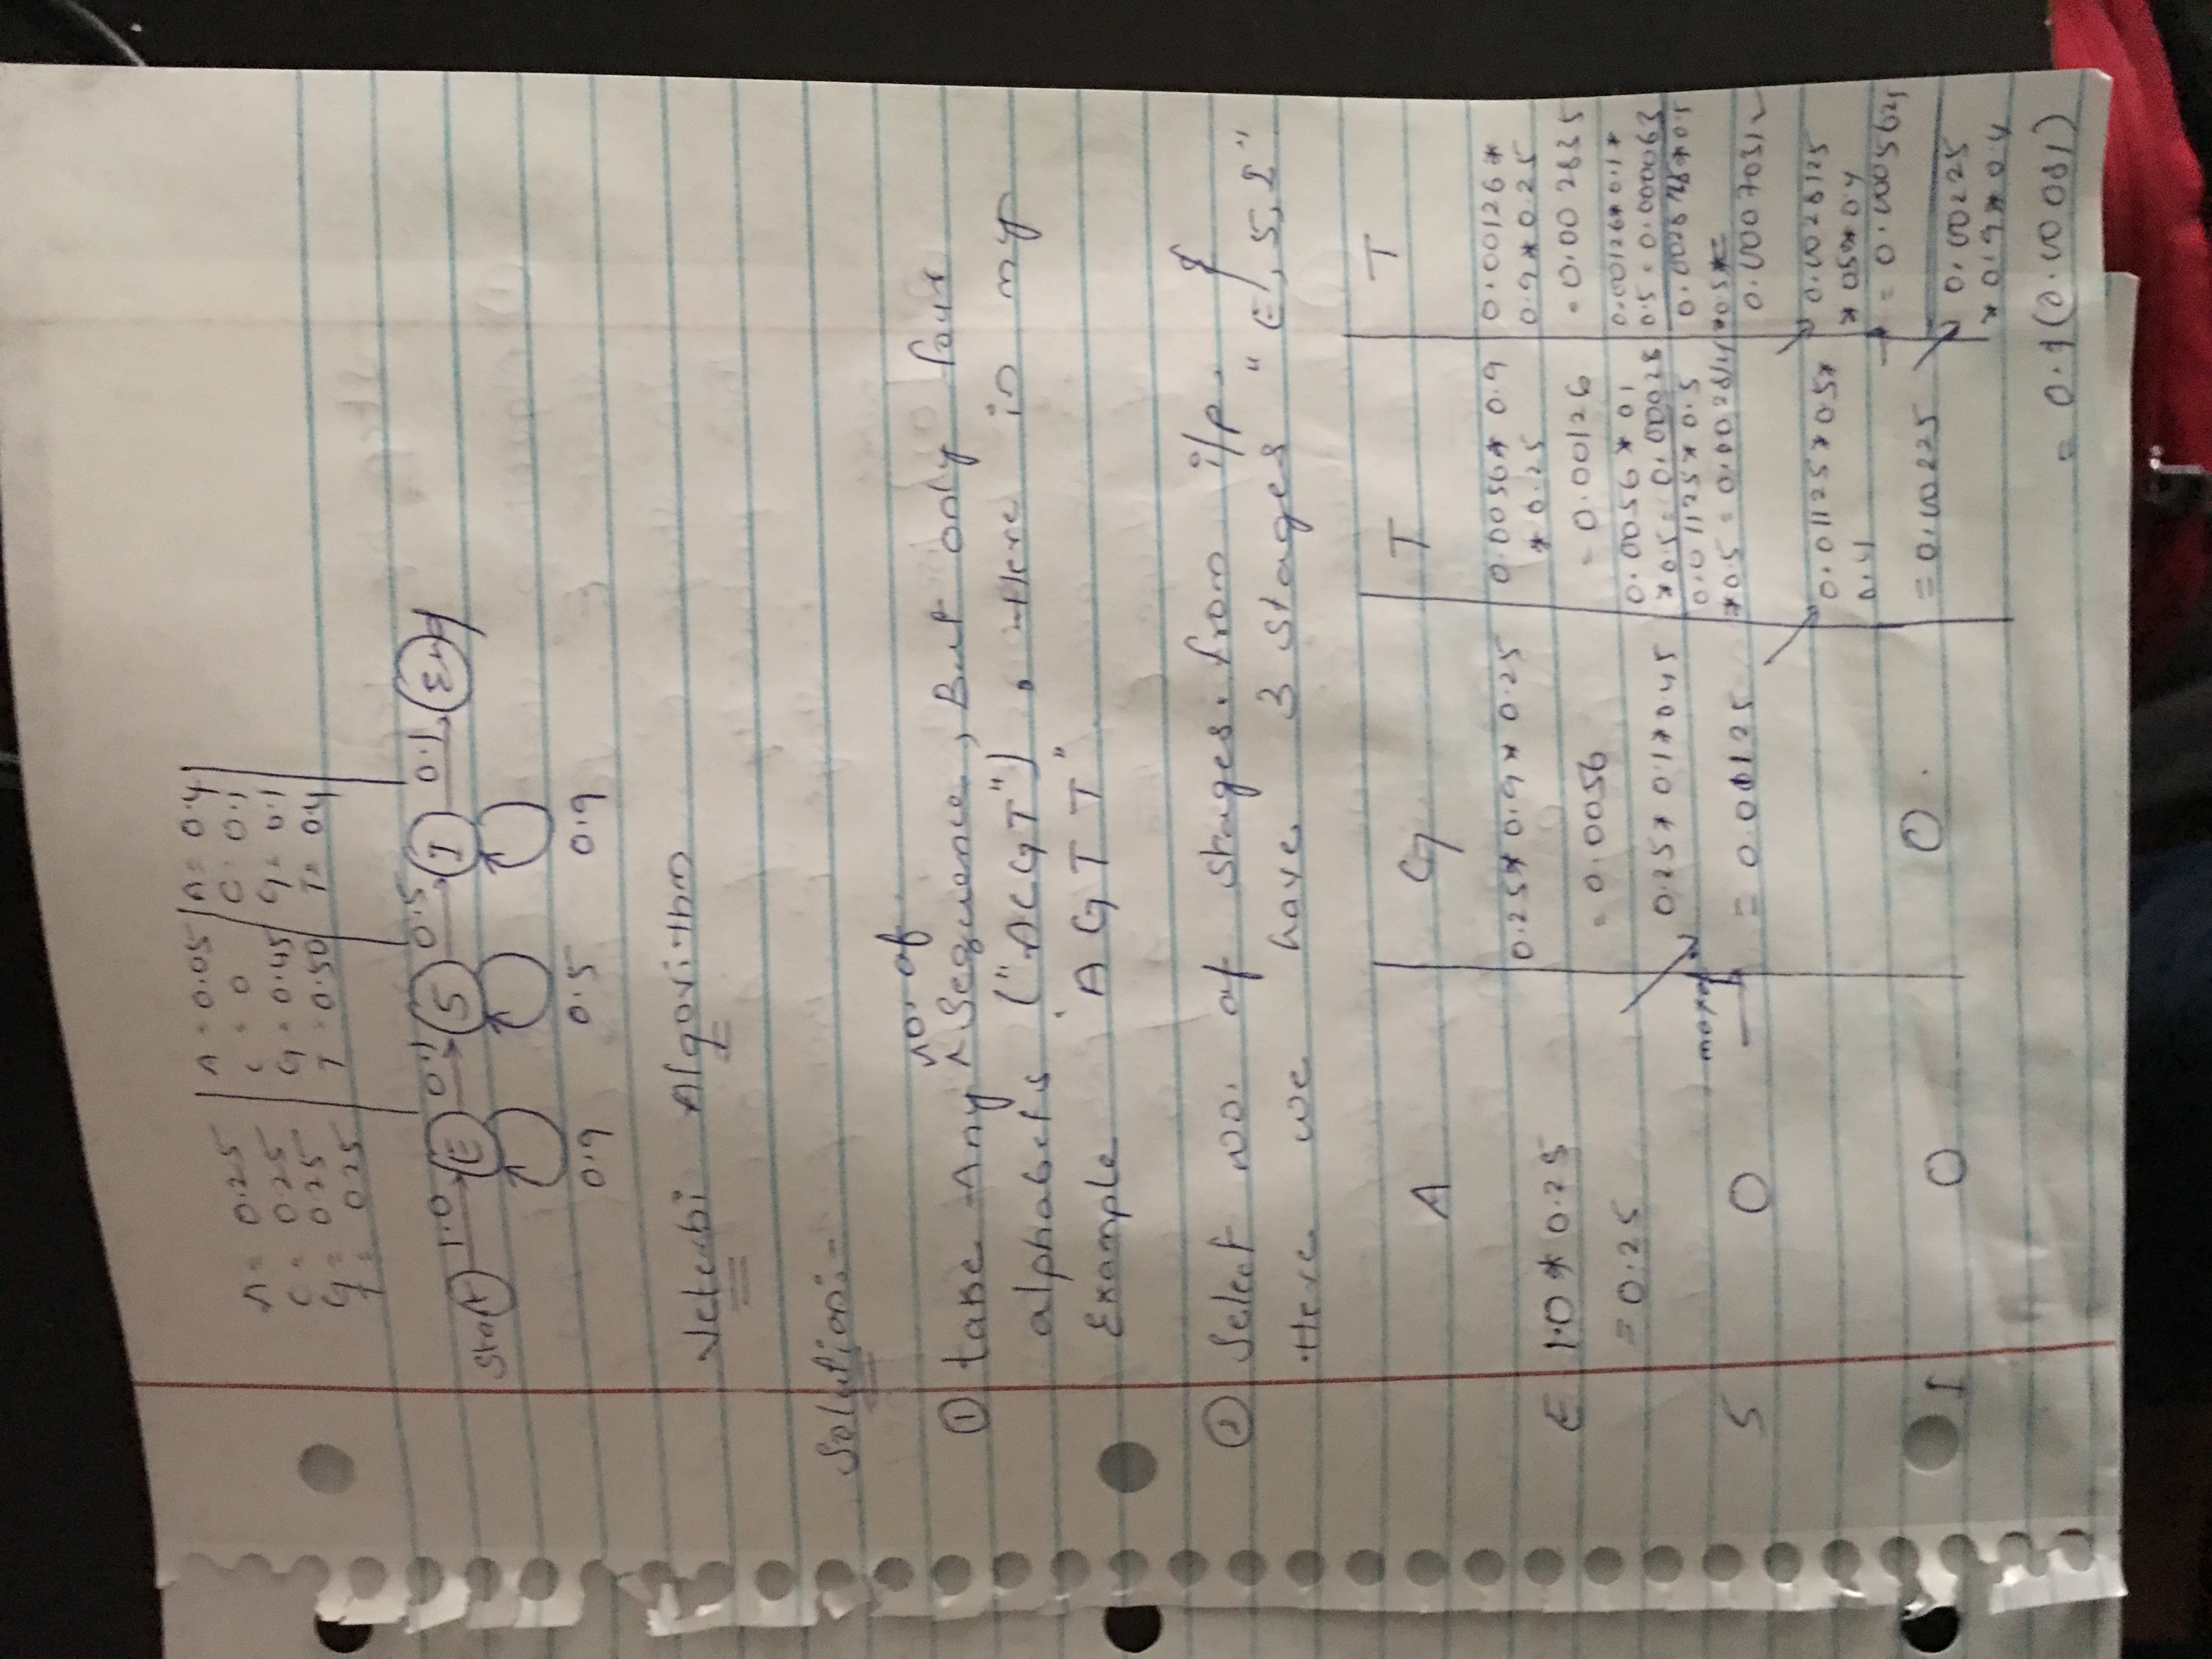 A = 0.25 | A = 0.05 | A = 0.4
C = 0.25 | C = 0 | C = 0.1
G = 0.25 | G = 0.45 | G = 0.1
T = 0.25 | T = 0.50 | T = 0.4
Start 1.0 E 0.1 S 0.5 I 0.1 End
0.9 0.5 0.9
Veterbi Algorithm
Solution:-
no. of
① take Any ^ Sequence, But only four
alphabets ("ACGT"). Here in my
Example "AGTT"
② Select no. of stages. from i/p. $
Here we have 3 stages "E, S, I"
A G T T
E 1.0 * 0.25
= 0.25
0.25 * 0.9 * 0.25
= 0.0056
0.0056 * 0.9
* 0.25
= 0.00126
0.00126 *
0.9 * 0.25
= 0.002835
S 0
max of
0.25 * 0.1 * 0.45
0.0056 * 0.1
* 0.5 = 0.00028
0.01125 * 0.5
0.00126 * 0.1 *
0.5 = 0.000063
0.0007031
I 0 0
0.01125 * 0.5 *
0.4
= 0.00225
0.0028125
* 0.5 * 0.4
= 0.0005625
0.00225
* 0.9 * 0.4
= 0.1(0.00081)